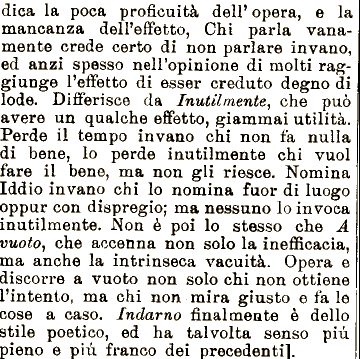 dica la poca proficuità dell'opera, e la
mancanza dell'effetto, Chi parla vana-
mente crede certo di non parlare invano,
ed anzi spesso nell'opinione di molti rag-
giunge l'effetto di esser creduto degno di
lode. Differisce da Inutilmente, che può
avere un qualche effetto, giammai utilità.
Perde il tempo invano chi non fa nulla
di bene, lo perde inutilmente chi vuol
fare il bene, ma non gli riesce. Nomina
Iddio invano chi lo nomina fuor di luogo
oppur con dispregio; ma nessuno lo invoca
inutilmente. Non è poi lo stesso che A
vuoto, che accenna non solo la inefficacia,
ma anche la intrinseca vacuità. Opera e
discorre a vuoto non solo chi non ottiene
l'intento, ma chi non mira giusto e fa le
cose a caso. Indarno finalmente è dello
stile poetico, ed ha talvolta senso piú
pieno e piú franco dei precedenti].